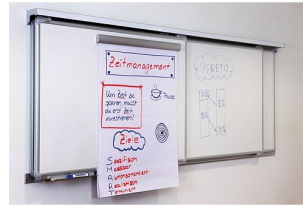 Zeitmanagement
Um Zeit zu
sparen, musst
du erst Zeit
investieren!
Pause
Ziele
Spezifisch
Messbar
Aktionsorientiert
Realistisch
Terminiert
PARETO